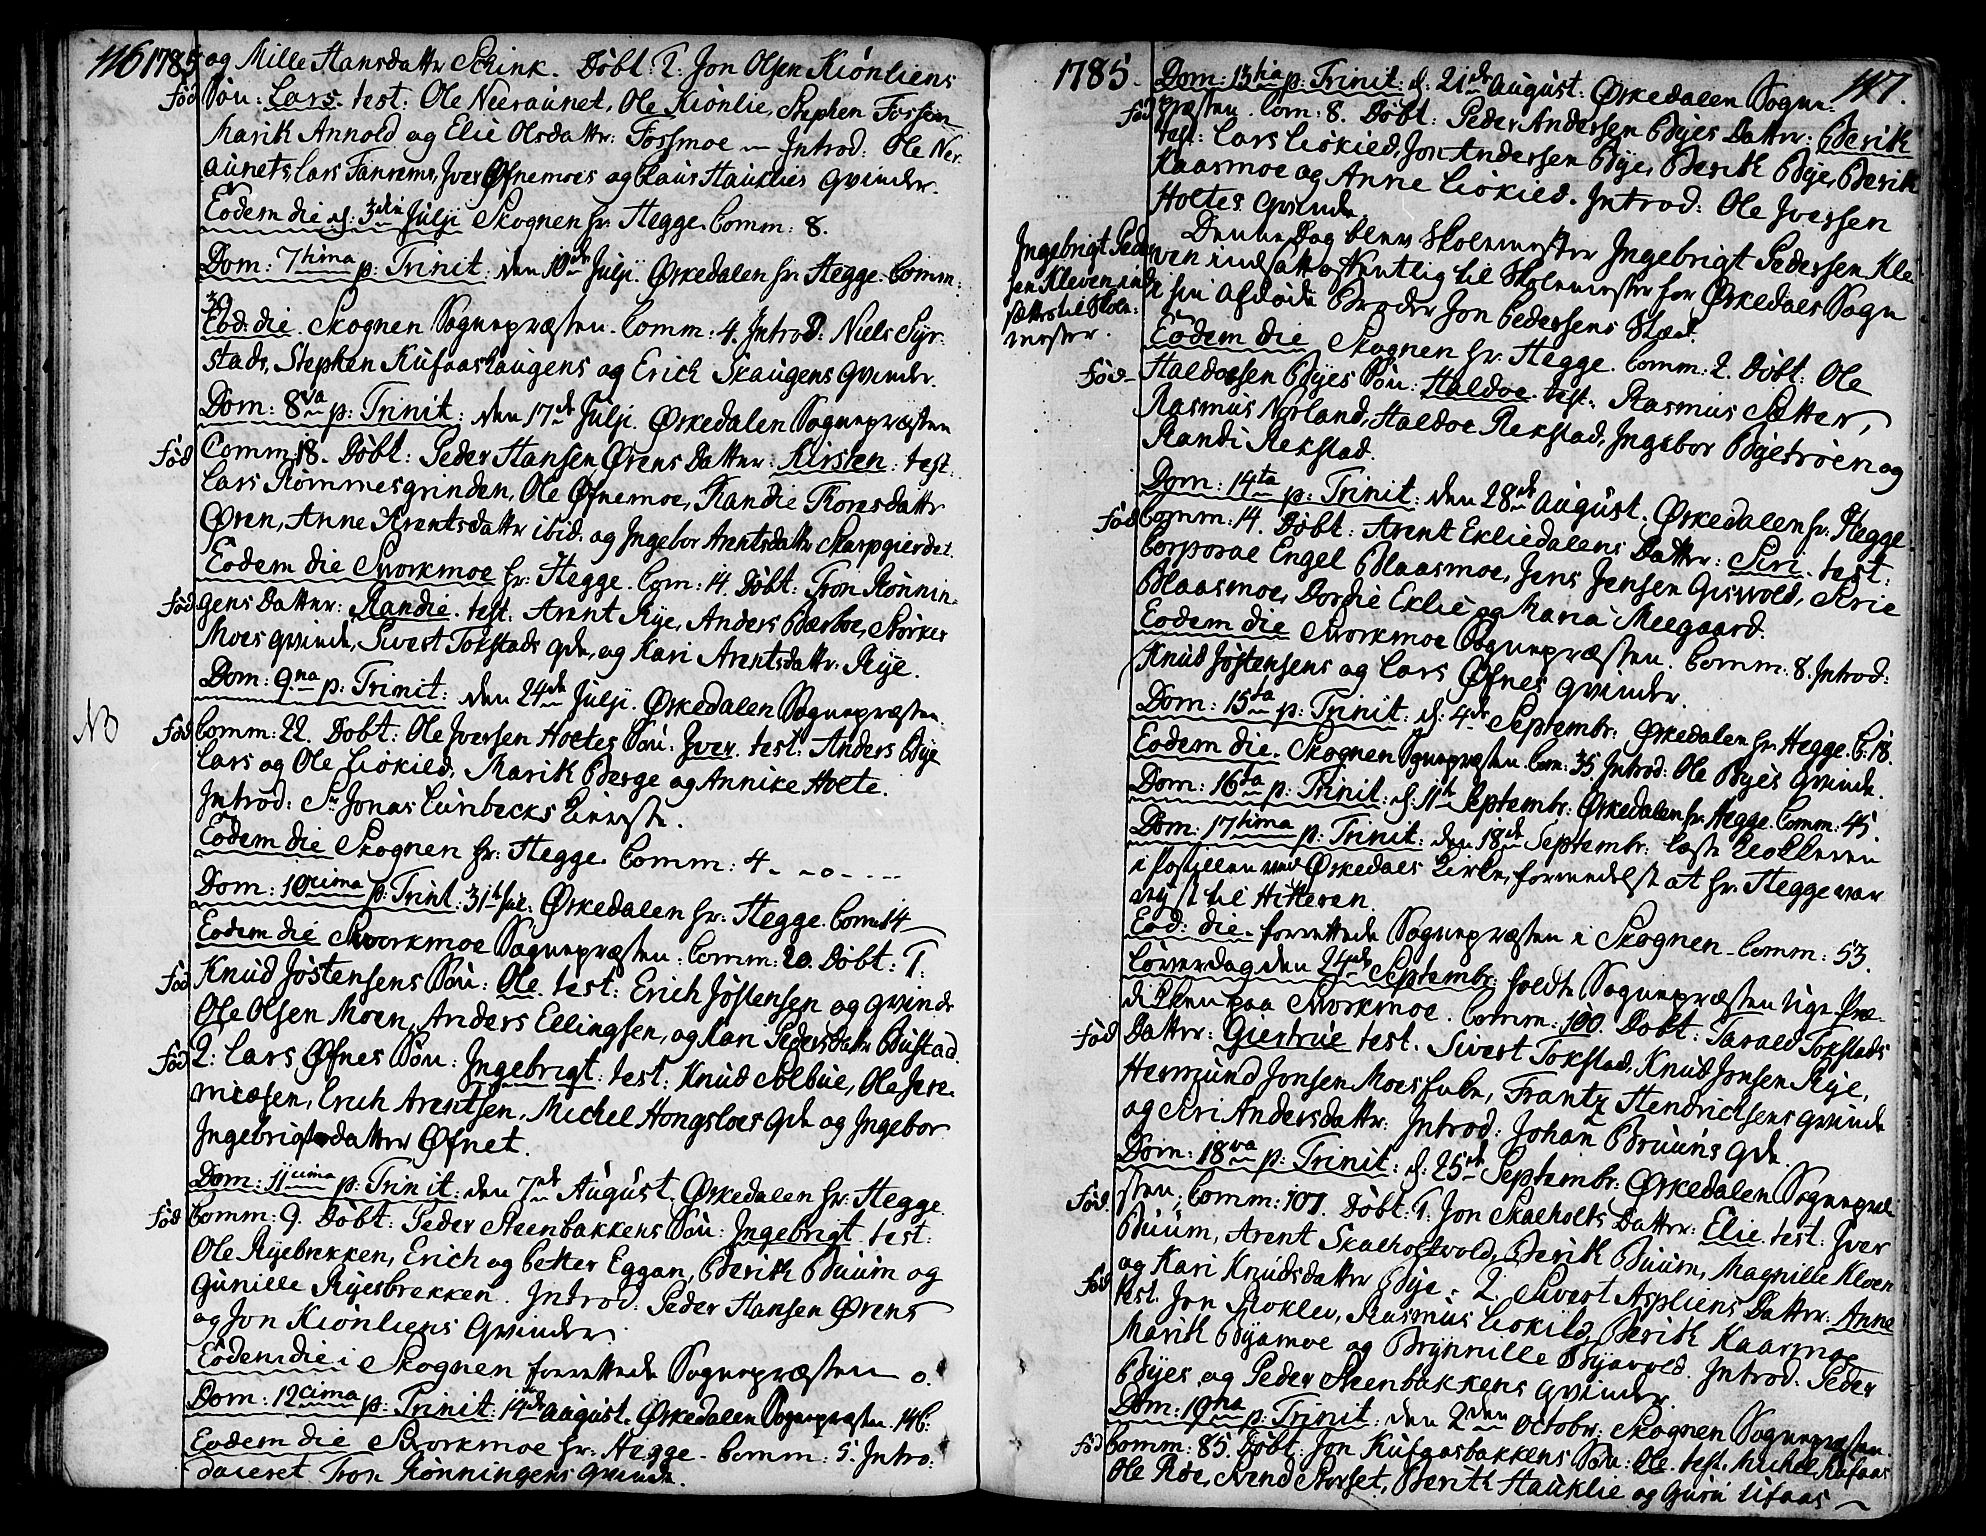 116 1785 og Mille Hansdattr Schink. Döbt: 2. Jon Olsen Kiönliens
Fød Sön: Lars. test: Ole Neeraunet, Ole Kiönlie, Stephen Fossem
Marit Annold og Elie Olsdattr: Fossmoe — Introd: Ole Ner-
aunets, Lars Fanrems, Iver Øfnemoes og Claus Hauklies Qvinder.
Eodem die d: 3die Julji Skognen hr: Hegge. Comm: 8.
Dom: 7tima p: Trinit: den 10de Julji. Ørkedalen hr: Hegge. Comm:
30.
Eod: die. Skognen Sognepræsten. Comm: 4. Introd: Niels Syr-
stads, Stephen Kufaashaugens og Erich Skaugens Qvinder.
Dom: 8va p: Trinit: den 17de Julji. Ørkedalen Sognepræsten
Fød Comm: 18. Döbt: Peder Hansen Ørens Datter: Kirsten: test:
Lars Rømmesgrinden, Ole Øfnemoe, Randie Toresdattr
Øren, Anne Arentsdattr ibid. og Ingebor Arentsdattr Skarpgierdet.
Eodem die Svorkmoe hr: Hegge. Com: 14. Döbt: Tron Rønnin-
Fød gens Datter: Randie. test: Arent Rye, Anders Bærboe, Størker
Moes qvinde, Sivert Tokstads qde, og Kari Arentsdattr: Rye.
Dom: 9na p: Trinit: den 24de Julji. Ørkedalen Sognepræsten.
NB Fød Comm: 22. Döbt: Ole Iversen Holtes Sön. Iver. test: Anders Bye
Lars og Ole Liøkied, Marit Berge og Annike Holte.
Introd: Sr Jonas Lünbecks Kiereste.
Eodem die Skognen hr: Hegge. Comm: 4 - - o - - -
Dom: 10cima p: Trinit: 31te Jul: Ørkedalen hr: Hegge. Com: 14
Eodem die Svorkmoe Sognepræsten: Comm: 20. Döbt: 1:
Fød Knud Jøstensens Sön: Ole. test: Erich Jøstensen og qvinde
Ole Olsen Moen, Anders Ellingsen, og Kari Pedersdattr Bustad.
Fød 2: Lars Øfnes Sön: Ingebrigt: test: Knud Solbue, Ole Jere-
miæsen, Erich Arentsen, Michel Hongsloes qde og Ingebor
Ingebrigtsdatter Øfnet.
Dom: 11cima p: Trinit: den 7de August. Ørkedalen hr: Hegge.
Fød Comm: 9. Döbt: Peder Steenbakkens Sön: Ingebrigt. test:
Ole Ryebrekken, Erich og Petter Eggan, Berith Buum og
Gunille Ryesbrekken. Introd: Peder Hansen Ørens
og Jon Kiönliens Qvinder.
Eodem die i Skognen forrettede Sognepræsten o.
Dom: 12cima p: Trinit. 14de August. Ørkedalen Sognepræsten. 14 C:
Eodem die Svorkmoe hr: Hegge. Comm: 5. Intro:
duceret Tron Rønningens Qvinde.
1785. Dom: 13tia p: Trinit: d: 21de August. Ørkedalen Sogne- 117.
Fød præsten. Com: 8. Döbt: Peder Andersen Byes Datter: Berith
test: Lars Liøkied, Jon Andersen Bye, Berith Bye, Berith
Kaasmoe og Anne Liøkied. Introd: Ole Iversen
Holtes Qvinde.
Denne Dag blev Skolemester Ingebrigt Pedersen Kle-
Ingebrigt Peder- ven indsatt offentlig til Skolemester for Ørkedals Sogn
sen Kleven ind- i sin afdøde Broder Jon Pedersens Stæd.
sættes til Skole-
mester.
Eodem die Skognen hr: Hegge. Comm: 2. Döbt: Ole
Fød Haldorsen Byes Sön: Haldoe. test: Rasmus Sætter,
Rasmus Norland, Haldoe Rekstad, Ingebor Byetrøen og
Randi Rekstad.
Dom: 14ta p: Trinit: den 28de August. Ørkedalen hr: Hegge
Fød Comm: 14. Döbt: Arent Ekliedalens Datter: Siri. test:
Corporal Engel Blaasmoe, Jens Jensen Giswold, Sirie
Blaasmoe, Dordie Eklie og Maria Meegaard.
Eodem die Svorkmoe Sognepræsten. Comm: 8. Introd:
Knud Jøstensens og Lars Øfnes Qvinder.
Dom: 15ta p: Trinit: d: 4de Septembr: Ørkedalen hr: Hegge. C: 18.
Eodem die. Skognen Sognepræsten. Com: 35. Introd: Ole Byes Qvinde.
Dom: 16ta p: Trinit: d: 11te Septembr: Ørkedalen hr: Hegge. Comm: 45.
Dom: 17tima p: Trinit: den 18de Septembr: læste Klokkeren
i Postillen ved Ørkedals Kirke, formedelst at hr: Hegge var
rejst til Hitteren.
Eod: die. forrettede Sognepræsten i Skognen. Comm: 53.
Löverdag den 24de Septembr: holdte Sognepræsten Uge-Præ-
diken paa Svorkmoe. Comm: 100. Döbt: Tarald Tokstads
Fød Datter: Giertrue test. Sivert Tokstad, Knud Jonsen Rye,
Hermund Jonsen Moes, Frantz Hendrichsens qvinde
og Siri Andersdattr: Introd: Johan Bruuns qde.
Dom: 18va p: Trinit: d: 25de Septembr: Ørkedalen Sognepræ-
Fød sten. Comm: 101. Döbt: 1. Jon Skaeholts Datter: Elie. test: Iver
Buum, Arent Skaeholtvold, Berith Buum, Magnille Kloen
og Kari Knudsdatter Bye. 2. Sivert Aspliens Datter: Anne
Fød test. Jon Roklev, Rasmus Liøkild, Berith Kaasmoe
Marit Byamoe og Brynnille Byavold. Introd. Peder
Byes og Peder Steenbakkens Qvinder.
Dom: 19na p: Trinit: den 2den Octobr: Skognen Sognepræsten
Fød Comm: 85. Döbt: Jon Kufaasbakkens Sön: Ole. test. Michel Kufaas
Ole Röe, Svend Storset, Berith Hauklie og Guru Ufaas